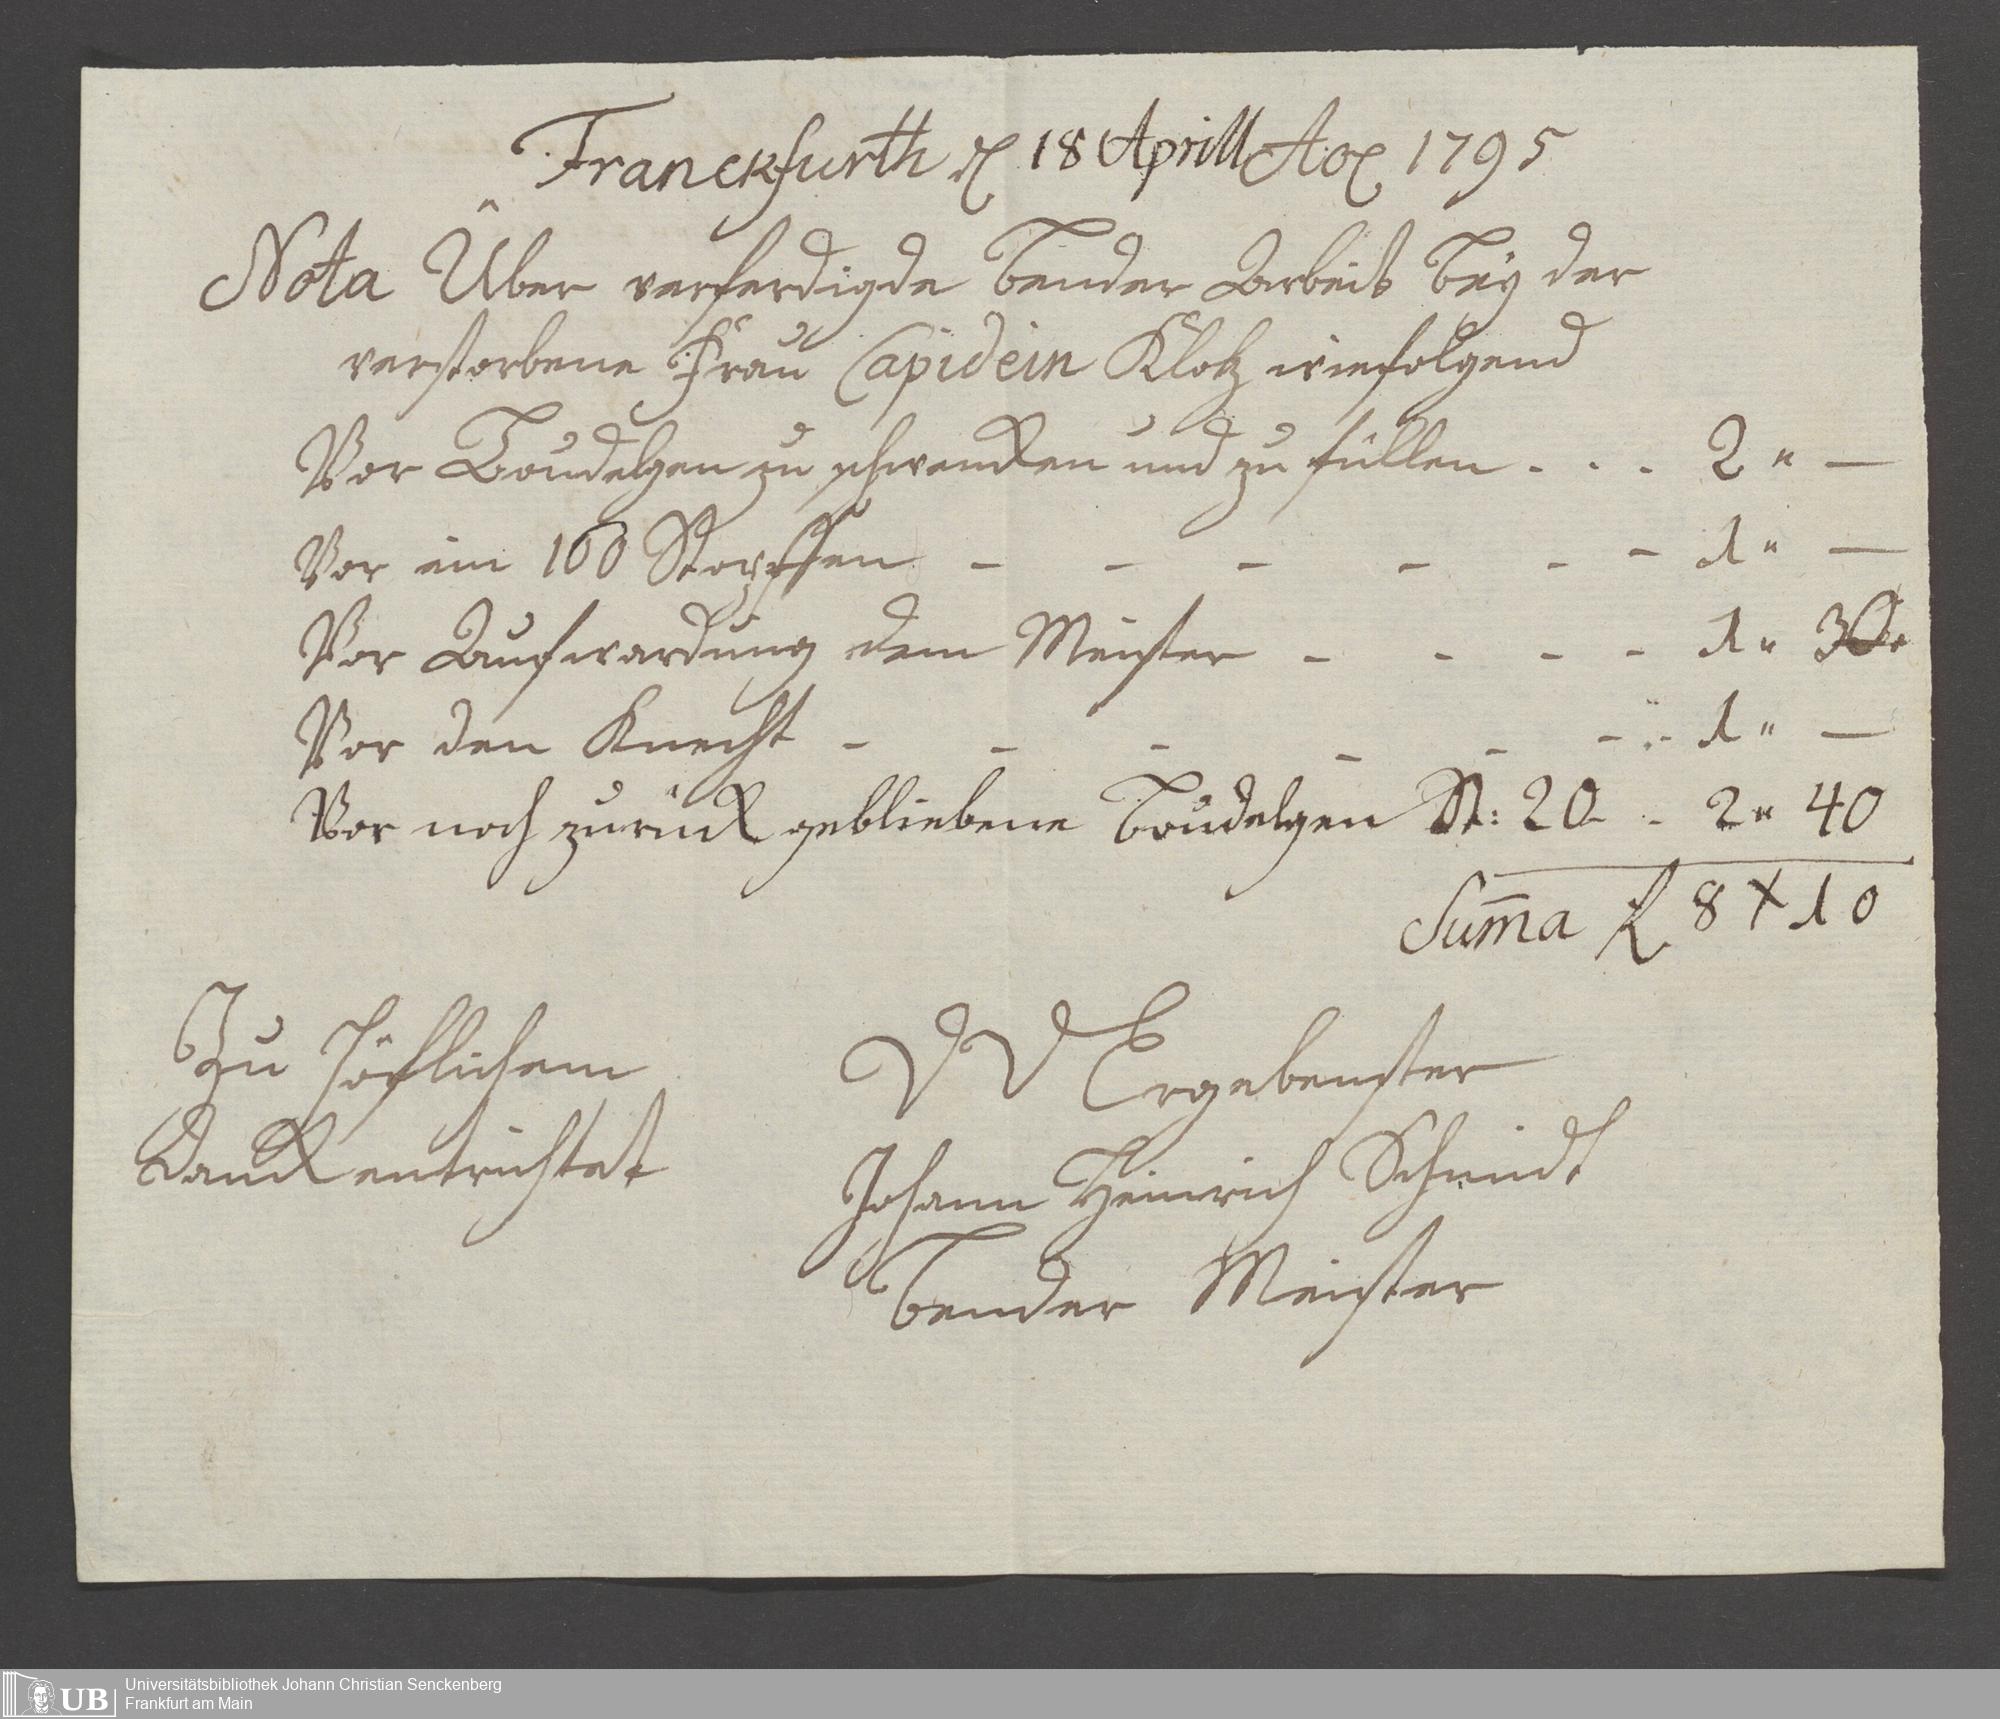 Franckfurth d 18 Aprill Ao 1795
Nota Über verferdigde Bender Arbeit bey der
verstorbene Frau Capidein Klotz wie folgend
Vor Boudelgen zu schwencken und zu füllen . . . 2 " —
Vor ein 100 Stopffen – – – – – – 1 " —
Vor Aufwardung dem Meister – – – – 1 " 30
Vor den Knecht – – – – – – 1 " —
Vor noch zurück gebliebene Boudelgen St: 20 – . 2 " 40
Sum̅a f 8 x 10
Zu höflichem
Danck entrichtet
Ergebenster
Johann Heinrich Schmidt
Bender Meister
UB
Universitätsbibliothek Johann Christian Senckenberg
Frankfurt am Main